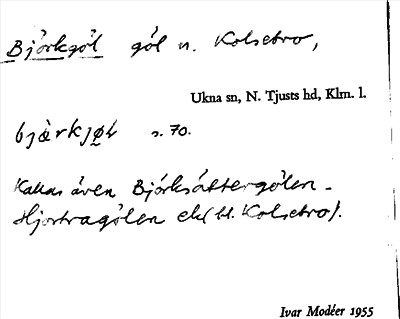 Björkgöl göl n. Kolsebro,
Ukna sn, N. Tjusts hd, Klm. l.
s. 70.
Kallas även Björksättergölen
Hjortragölen el. (bl. Kolsebro).
Ivar Modéer 1955